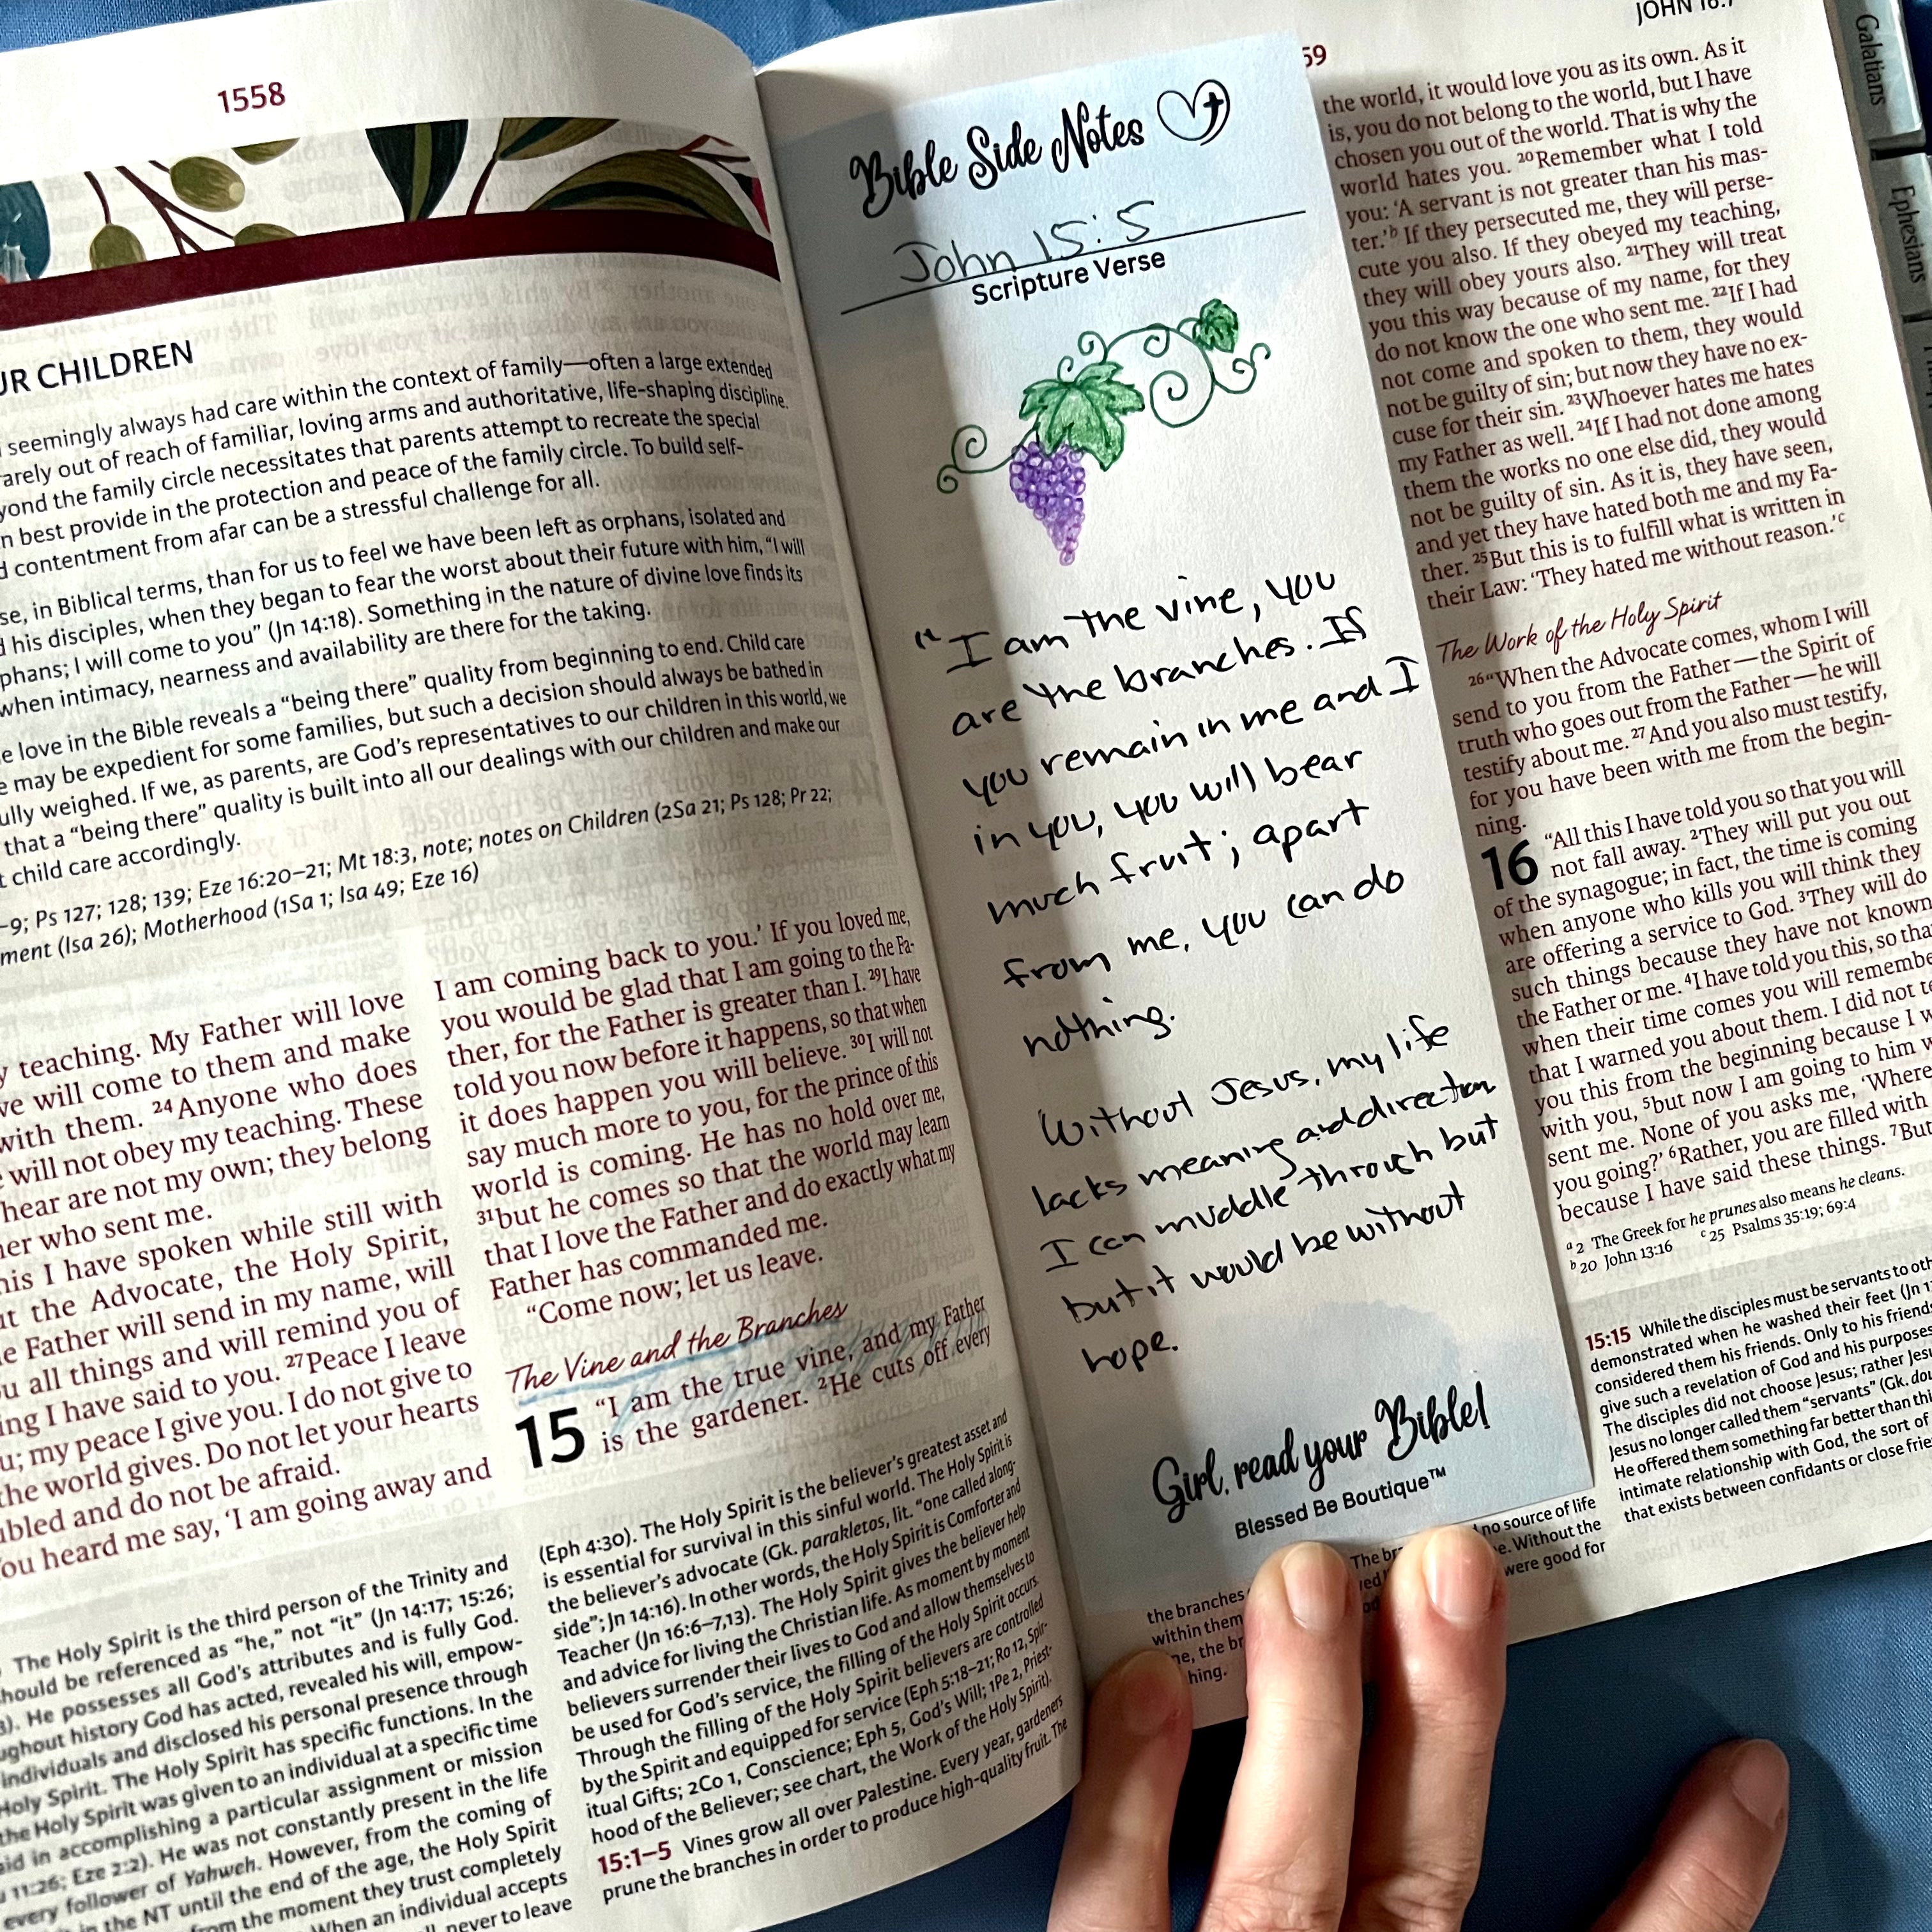 1558
UR CHILDREN
seemingly always had care within the context of family—often a large extended
rarely out of reach of familiar, loving arms and authoritative, life-shaping discipline.
yond the family circle necessitates that parents attempt to recreate the special
n best provide in the protection and peace of the family circle. To build self-
d contentment from afar can be a stressful challenge for all.
se, in Biblical terms, than for us to feel we have been left as orphans, isolated and
d his disciples, when they began to fear the worst about their future with him, “I will
phans; I will come to you” (Jn 14:18). Something in the nature of divine love finds its
when intimacy, nearness and availability are there for the taking.
e love in the Bible reveals a “being there” quality from beginning to end. Child care
e may be expedient for some families, but such a decision should always be bathed in
ully weighed. If we, as parents, are God’s representatives to our children in this world, we
that a “being there” quality is built into all our dealings with our children and make our
t child care accordingly.
–9; Ps 127; 128; 139; Eze 16:20–21; Mt 18:3, note; notes on Children (2Sa 21; Ps 128; Pr 22;
ment (Isa 26); Motherhood (1Sa 1; Isa 49; Eze 16)
y teaching. My Father will love
ve will come to them and make
with them. 24Anyone who does
will not obey my teaching. These
hear are not my own; they belong
her who sent me.
his I have spoken while still with
ut the Advocate, the Holy Spirit,
e Father will send in my name, will
u all things and will remind you of
ing I have said to you. 27Peace I leave
u; my peace I give you. I do not give to
the world gives. Do not let your hearts
ubled and do not be afraid.
ou heard me say, ‘I am going away and
I am coming back to you.’ If you loved me,
you would be glad that I am going to the Fa-
ther, for the Father is greater than I. 29I have
told you now before it happens, so that when
it does happen you will believe. 30I will not
say much more to you, for the prince of this
world is coming. He has no hold over me,
31but he comes so that the world may learn
that I love the Father and do exactly what my
Father has commanded me.
“Come now; let us leave.
The Vine and the Branches
15 “I am the true vine, and my Father
is the gardener. 2He cuts off every
The Holy Spirit is the third person of the Trinity and
hould be referenced as “he,” not “it” (Jn 14:17; 15:26;
). He possesses all God’s attributes and is fully God.
ughout history God has acted, revealed his will, empow-
individuals and disclosed his personal presence through
Holy Spirit. The Holy Spirit has specific functions. In the
the Holy Spirit was given to an individual at a specific time
aid in accomplishing a particular assignment or mission
11:26; Eze 2:2). He was not constantly present in the life
every follower of Yahweh. However, from the coming of
in the NT until the end of the age, the Holy Spirit
from the moment they trust completely
When an individual accepts
never to leave
(Eph 4:30). The Holy Spirit is the believer’s greatest asset and
is essential for survival in this sinful world. The Holy Spirit is
the believer’s advocate (Gk. parakletos, lit. “one called along-
side”; Jn 14:16). In other words, the Holy Spirit is Comforter and
Teacher (Jn 16:6–7,13). The Holy Spirit gives the believer help
and advice for living the Christian life. As moment by moment
believers surrender their lives to God and allow themselves to
be used for God’s service, the filling of the Holy Spirit occurs.
Through the filling of the Holy Spirit believers are controlled
by the Spirit and equipped for service (Eph 5:18–21; Ro 12, Spir-
itual Gifts; 2Co 1, Conscience; Eph 5, God’s Will; 1Pe 2, Priest-
hood of the Believer; see chart, the Work of the Holy Spirit).
15:1–5 Vines grow all over Palestine. Every year, gardeners
prune the branches in order to produce high-quality fruit. The
Bible Side Notes
John 15:5
Scripture Verse
"I am the vine, you
are the branches. If
you remain in me and I
in you, you will bear
much fruit; apart
from me, you can do
nothing.
Without Jesus, my life
lacks meaning and direction
I can muddle through but
but it would be without
hope.
Girl, read your Bible!
Blessed Be Boutique™
59
JOHN 16:7
the world, it would love you as its own. As it
is, you do not belong to the world, but I have
chosen you out of the world. That is why the
world hates you. 20Remember what I told
you: ‘A servant is not greater than his mas-
ter.’b If they persecuted me, they will perse-
cute you also. If they obeyed my teaching,
they will obey yours also. 21They will treat
you this way because of my name, for they
do not know the one who sent me. 22If I had
not come and spoken to them, they would
not be guilty of sin; but now they have no ex-
cuse for their sin. 23Whoever hates me hates
my Father as well. 24If I had not done among
them the works no one else did, they would
not be guilty of sin. As it is, they have seen,
and yet they have hated both me and my Fa-
ther. 25But this is to fulfill what is written in
their Law: ‘They hated me without reason.’c
The Work of the Holy Spirit
26“When the Advocate comes, whom I will
send to you from the Father—the Spirit of
truth who goes out from the Father—he will
testify about me. 27And you also must testify,
for you have been with me from the begin-
ning.
16 “All this I have told you so that you will
not fall away. 2They will put you out
of the synagogue; in fact, the time is coming
when anyone who kills you will think they
are offering a service to God. 3They will do
such things because they have not known
the Father or me. 4I have told you this, so that
when their time comes you will remembe
that I warned you about them. I did not te
you this from the beginning because I w
with you, 5but now I am going to him w
sent me. None of you asks me, ‘Where
you going?’ 6Rather, you are filled with
because I have said these things. 7But
a2 The Greek for he prunes also means he cleans.
b20 John 13:16 c25 Psalms 35:19; 69:4
15:15 While the disciples must be servants to oth
demonstrated when he washed their feet (Jn 1
considered them his friends. Only to his friend
give such a revelation of God and his purposes
The disciples did not choose Jesus; rather Jesu
Jesus no longer called them “servants” (Gk. dou
He offered them something far better than thi
intimate relationship with God, the sort of
that exists between confidants or close frie
the branches
within them
ne, the br
hing.
The br
no source of life
e. Without the
were good for
Galatians
Ephesians